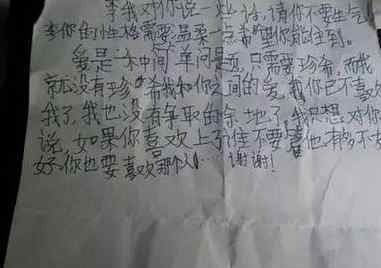 李我对你说一些话,请你不要生气
李你的性格需要温柔一点希望你能住到。
爱是一种间单问是,只需要珍希,而我
就没有珍希我和你之间的爱,我你已不喜欢
我了,我也没有争取的余地了,我只想对你
说,如果你喜欢上了住不要管他有多不
好你也要喜欢那个人……谢谢!